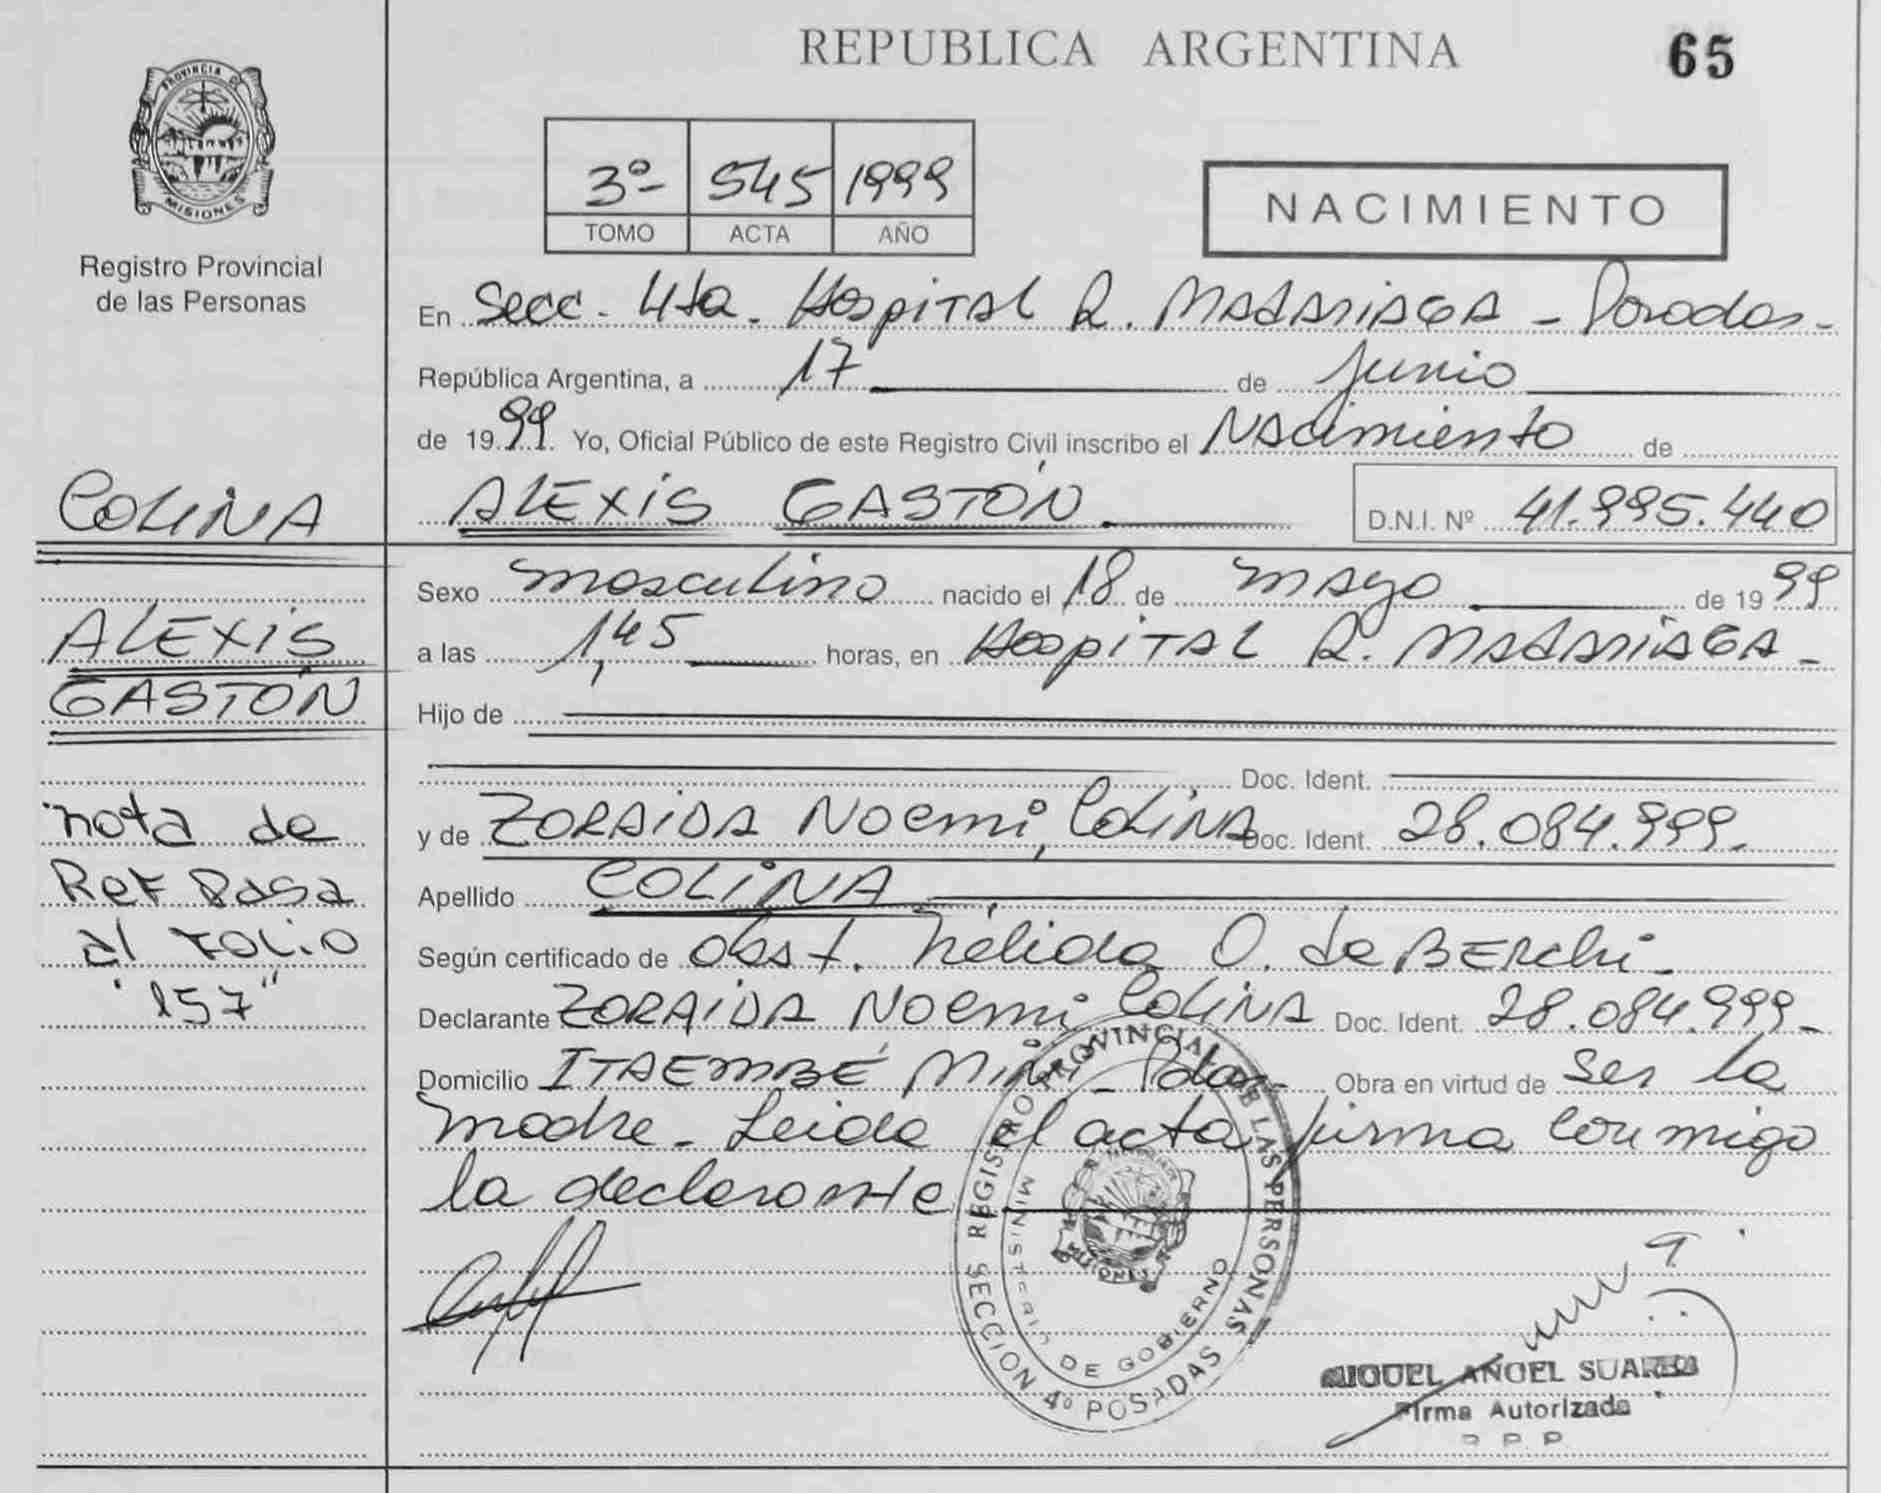 REPUBLICA ARGENTINA
65
PROVINCIA DE
MISIONES
Registro Provincial
de las Personas
3º- 545 1999
TOMO ACTA AÑO
NACIMIENTO
En Secc. 4ta. Hospital R. Madariaga - Posadas-
República Argentina, a 17 de Junio
de 1999. Yo, Oficial Público de este Registro Civil inscribo el Nacimiento de
ALEXIS GASTÓN D.N.I. Nº 41.995.440
COLINA
ALEXIS
GASTÓN
nota de
Ref Pasa
al Folio
"157"
Sexo masculino nacido el 18 de mayo de 1999
a las 1,45 horas, en Hospital R. Madariaga-
Hijo de
Doc. Ident.
y de ZORAIDA NOEMI, COLINA Doc. Ident. 28.084.999.
Apellido COLINA
Según certificado de obst. Nélida O. de Berchi-
Declarante ZORAIDA NOEMI COLINA Doc. Ident. 28.084.999-
Domicilio ITAEMBÉ Mini- Pdas- Obra en virtud de ser la
madre. Leida el acta, firma conmigo
la declarante
REGISTRO PROVINCIAL DE LAS PERSONAS
MINISTERIO DE GOBIERNO
MISIONES
SECCION 4º POSADAS
MIGUEL ANGEL SUAREZ
Firma Autorizada